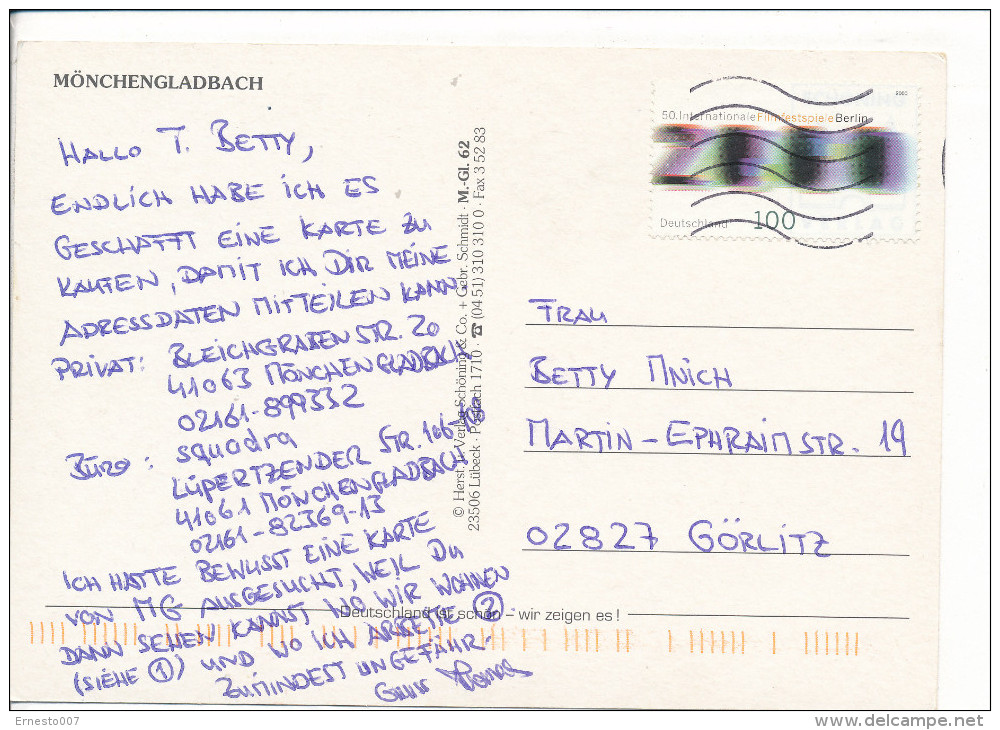 MÖNCHENGLADBACH
HALLO T. BETTY,
ENDLICH HABE ICH ES
GESCHAFFT EINE KARTE ZU
KAUFEN, DAMIT ICH DIR MEINE
ADRESSDATEN MITTEILEN KANN.
PRIVAT: BLEICHGRABENSTR. 20
41063 MÖNCHENGLADBACH
02161-899332
BÜRO: squadra
LÜPERTZENDER STR.
41061 MÖNCHENGLADBACH
02161-82369-13
ICH HATTE BEWUSST EINE KARTE
VON MG AUSGESUCHT, WEIL DU
DANN SEHEN KANNST WO WIR WOHNEN
(SIEHE ①) UND WO ICH ARBEITE ②
ZUMINDEST UNGEFÄHR.
Gruss Thomas
© Herst. u. Verlag Schöning & Co. + Gebr. Schmidt · M.-Gl. 62
23506 Lübeck · Postfach 1710 · ☎ (04 51) 310 310 0 · Fax 3 52 83
50. Internationale Filmfestspiele Berlin
2000
Deutschland 100
FRAU
BETTY MNICH
MARTIN-EPHRAIMSTR. 19
02827 GÖRLITZ
Deutschland ist schön – wir zeigen es!
Ernesto007
www.delcampe.net